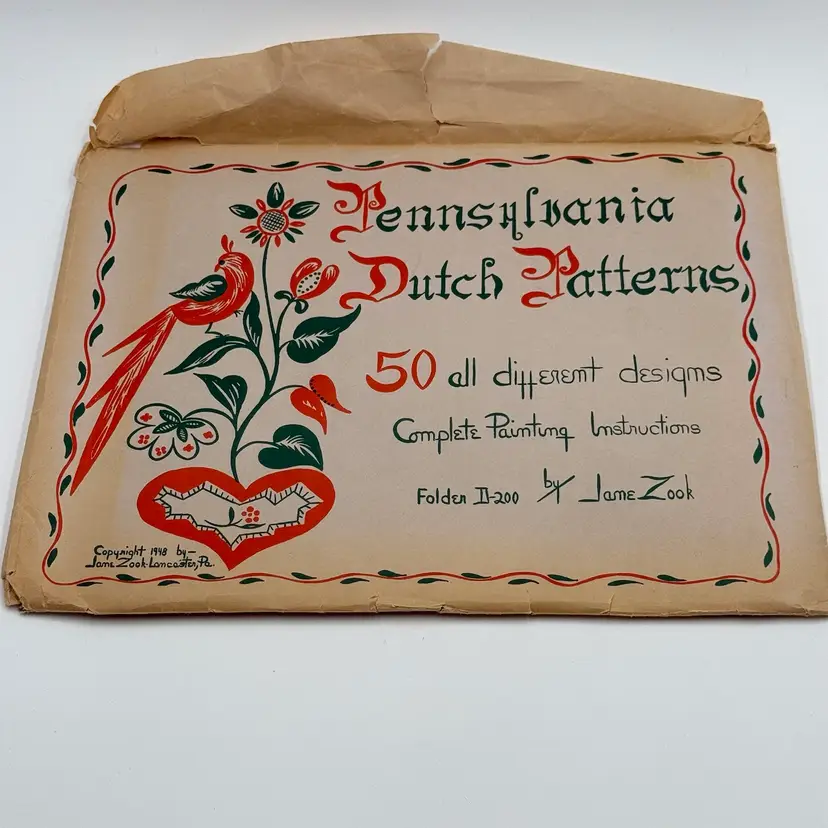 Pennsylvania
Dutch Patterns
50 all different designs
Complete Painting Instructions
Folder II-200 by Jane Zook
Copyright 1948 by—
Jane Zook-Lancaster, Pa.